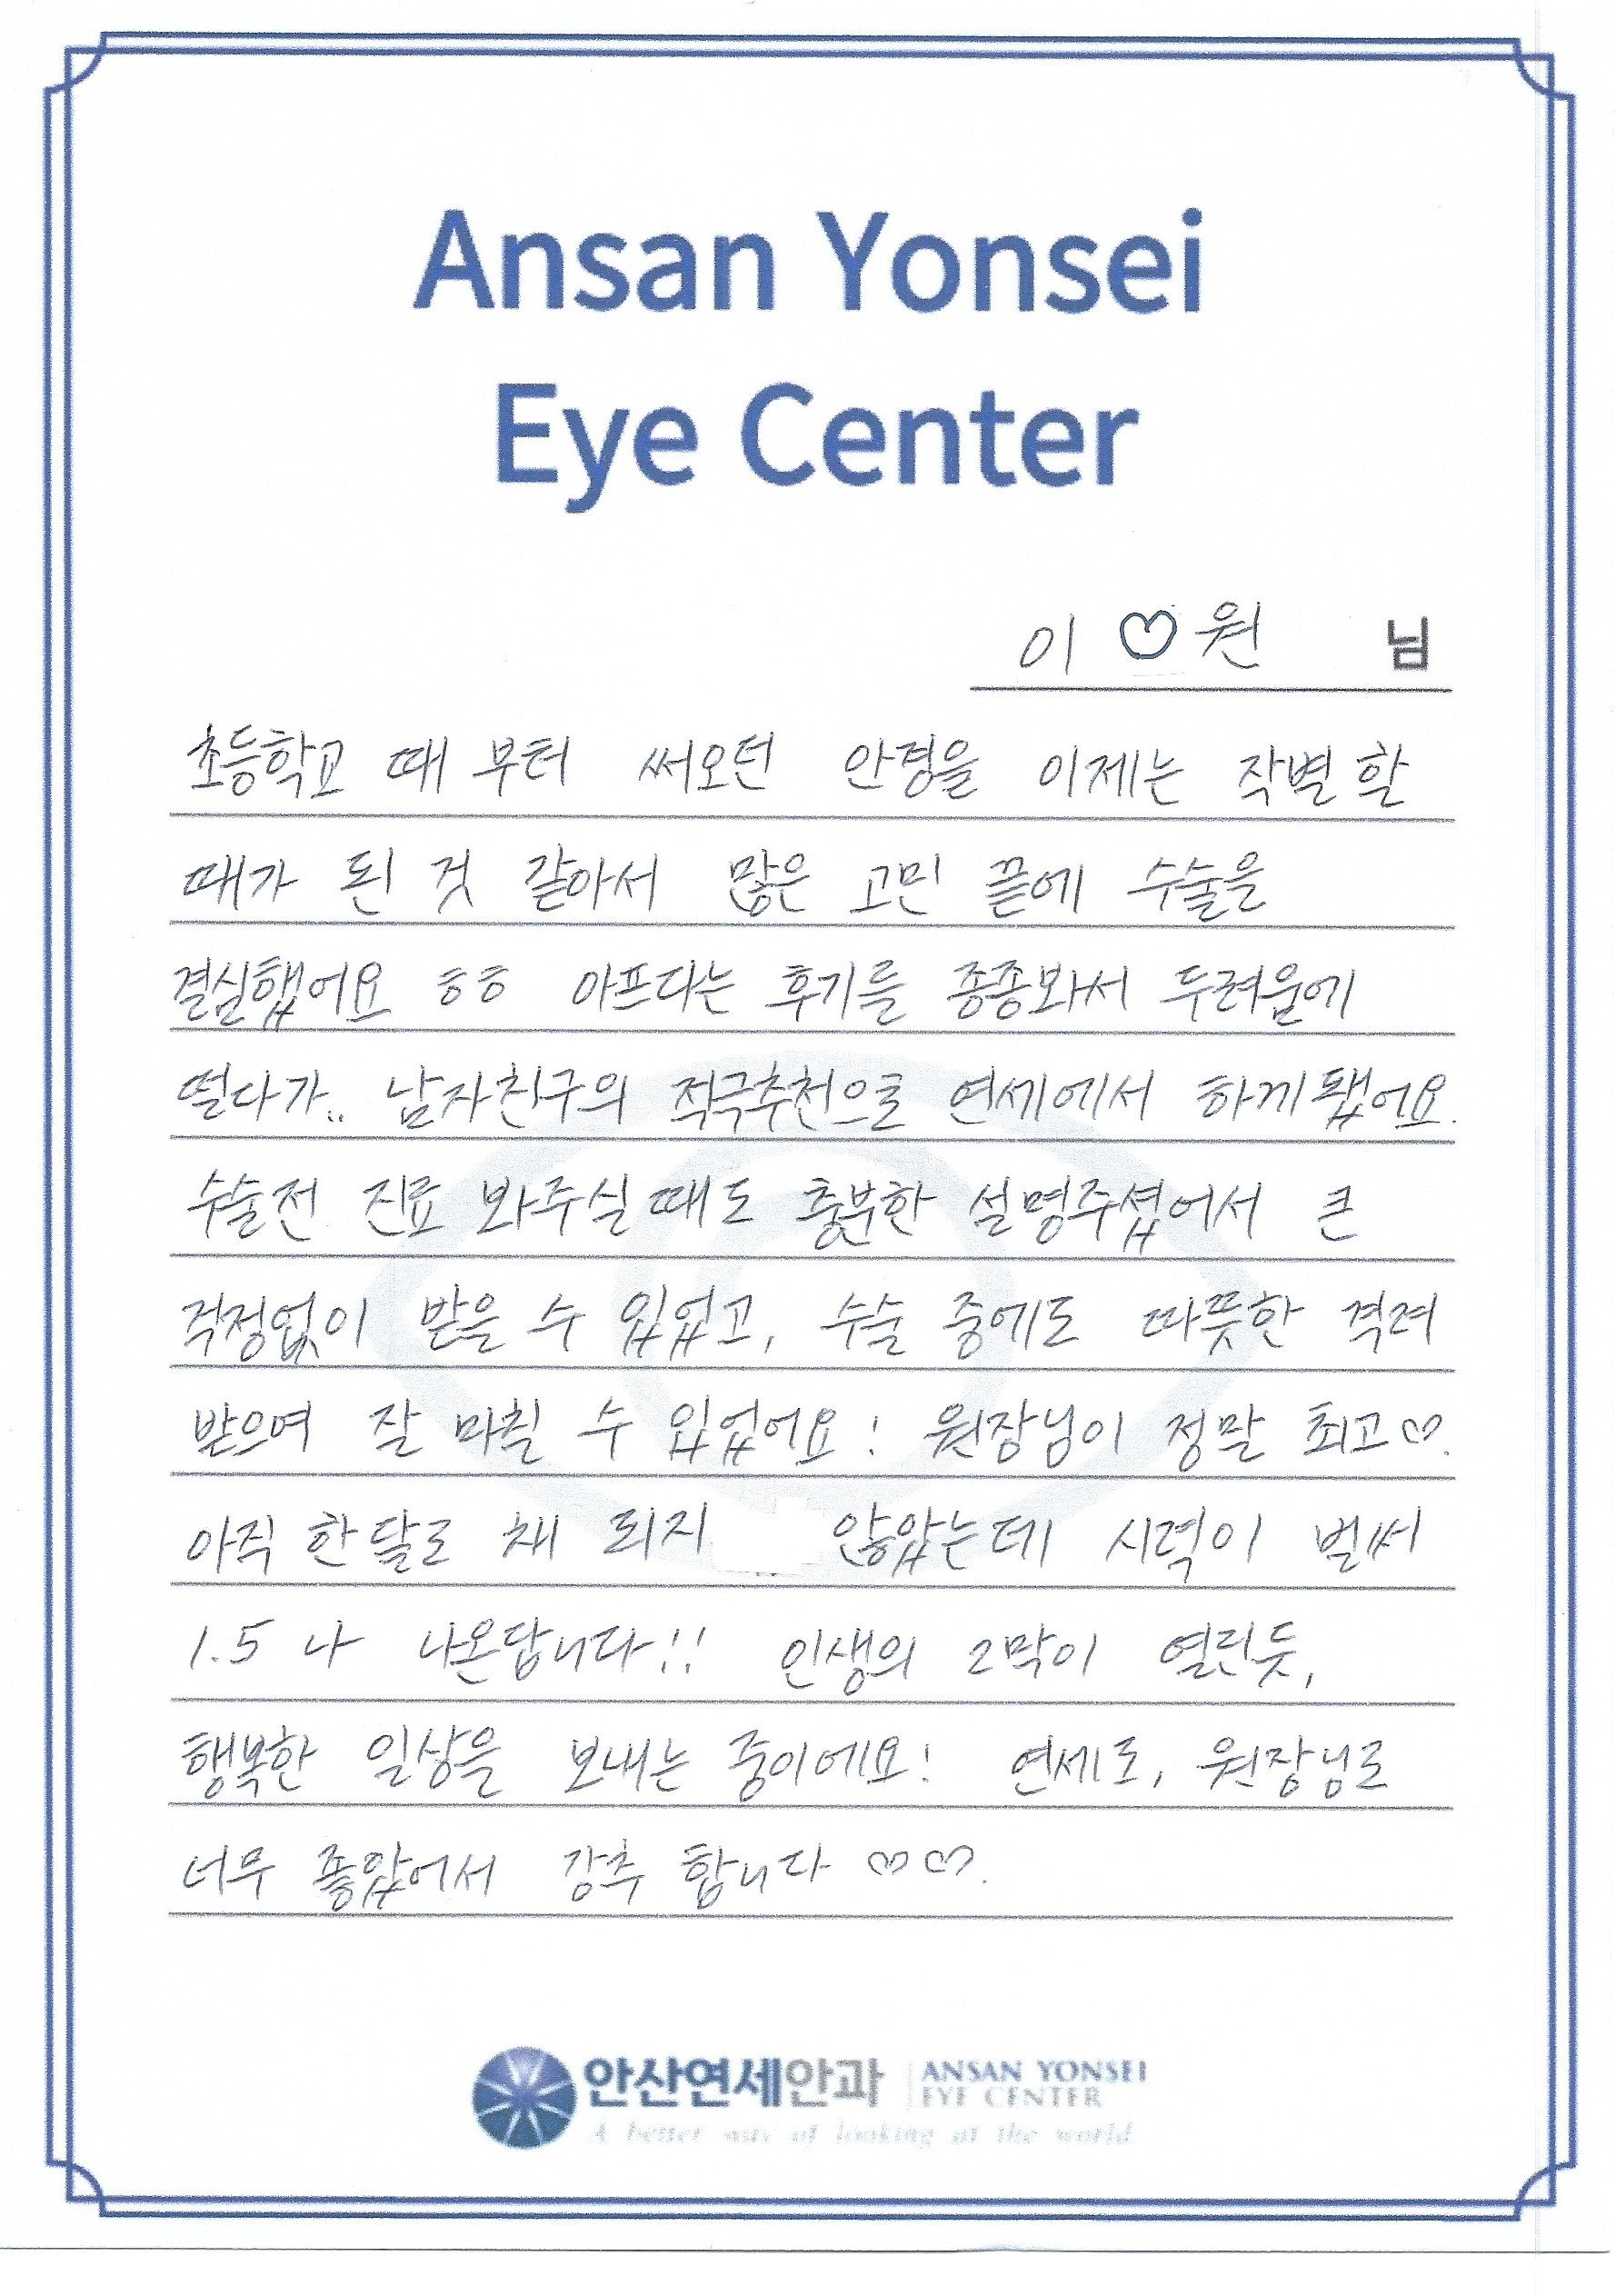 Ansan Yonsei
Eye Center
이 ♡ 원 님
초등학교 때 부터 써오던 안경을 이제는 작별 할
때가 된 것 같아서 많은 고민 끝에 수술을
결심했어요 ㅎㅎ 아프다는 후기를 종종봐서 두려움에
떨다가.. 남자친구의 적극추천으로 연세에서 하게됐어요.
수술전 진료 봐주실 때도 충분한 설명주셨어서 큰
걱정없이 받을 수 있었고, 수술 중에도 따뜻한 격려
받으며 잘 마칠 수 있었어요! 원장님이 정말 최고♡.
아직 한달도 채 되지 않았는데 시력이 벌써
1.5 나 나온답니다!! 인생의 2막이 열린듯,
행복한 일상을 보내는 중이에요! 연세도, 원장님도
너무 좋았어서 강추 합니다 ♡♡.
안산연세안과 ANSAN YONSEI
EYE CENTER
A better way of looking at the world